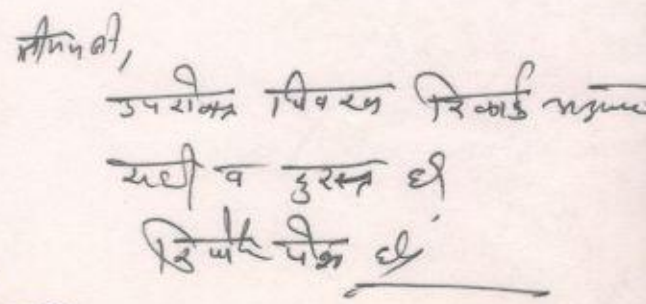 श्रीमान जी,
उपरोक्त विवरण रिकार्ड अनुसार
सही व दुरस्त है
रिपोर्ट पेश है